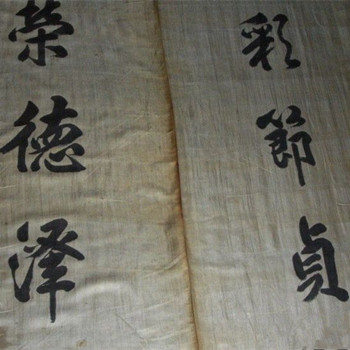 彩節貞
榮德澤